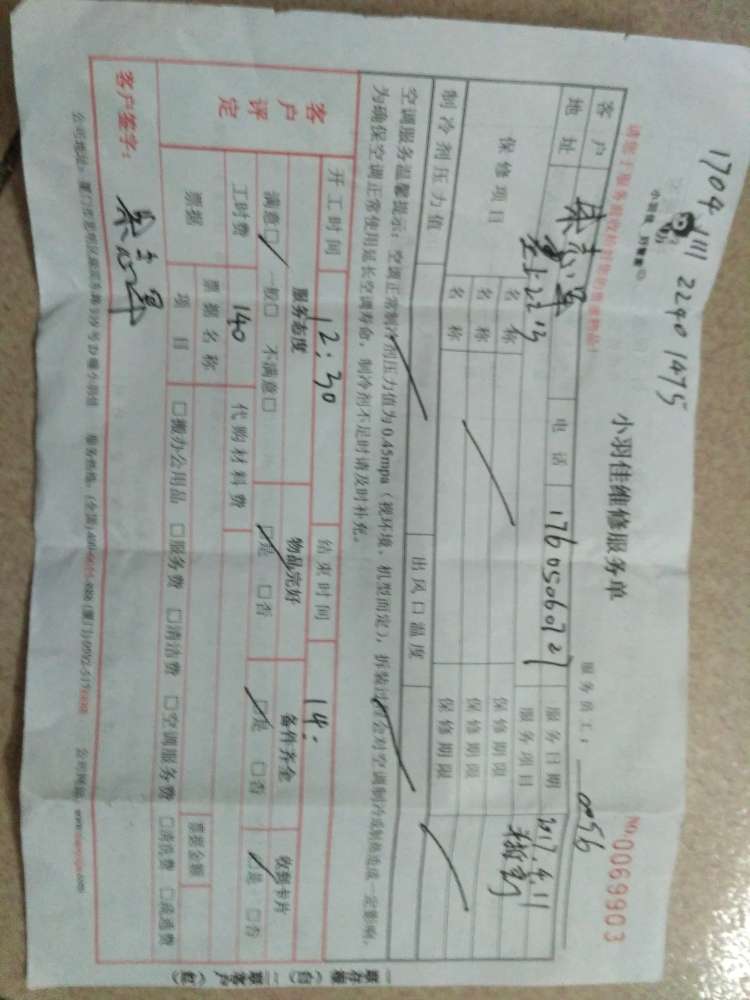 1704 111 2240 1475
小羽佳维修服务单
No. 0069903
服务员工: 0056
客户
电话 17605060727
服务日期 2017.4.11
地址
服务项目
保修项目
名称
保修期限
名称
保修期限
名称
保修期限
制冷剂压力值
出风口温度
空调服务温馨提示:空调正常制冷剂压力值为0.45mpa(视环境、机型而定),拆装过程会对空调制冷或制热造成一定影响,
为确保空调正常使用延长空调寿命,制冷剂不足时请及时补充。
开工时间 12:30
结束时间 14:
客户评定
服务态度
物品完好
备件齐全
收到卡片
满意□ 一般□ 不满意□
□是 □否
□是 □否
□是 □否
工时费 140
代购材料费
票据
票据名称
票据金额
项目
□搬办公用品 □服务费 □清洁费 □空调服务费 □清洗费 □疏通费
客户签字:
一联存根(白) 二联客户(红)